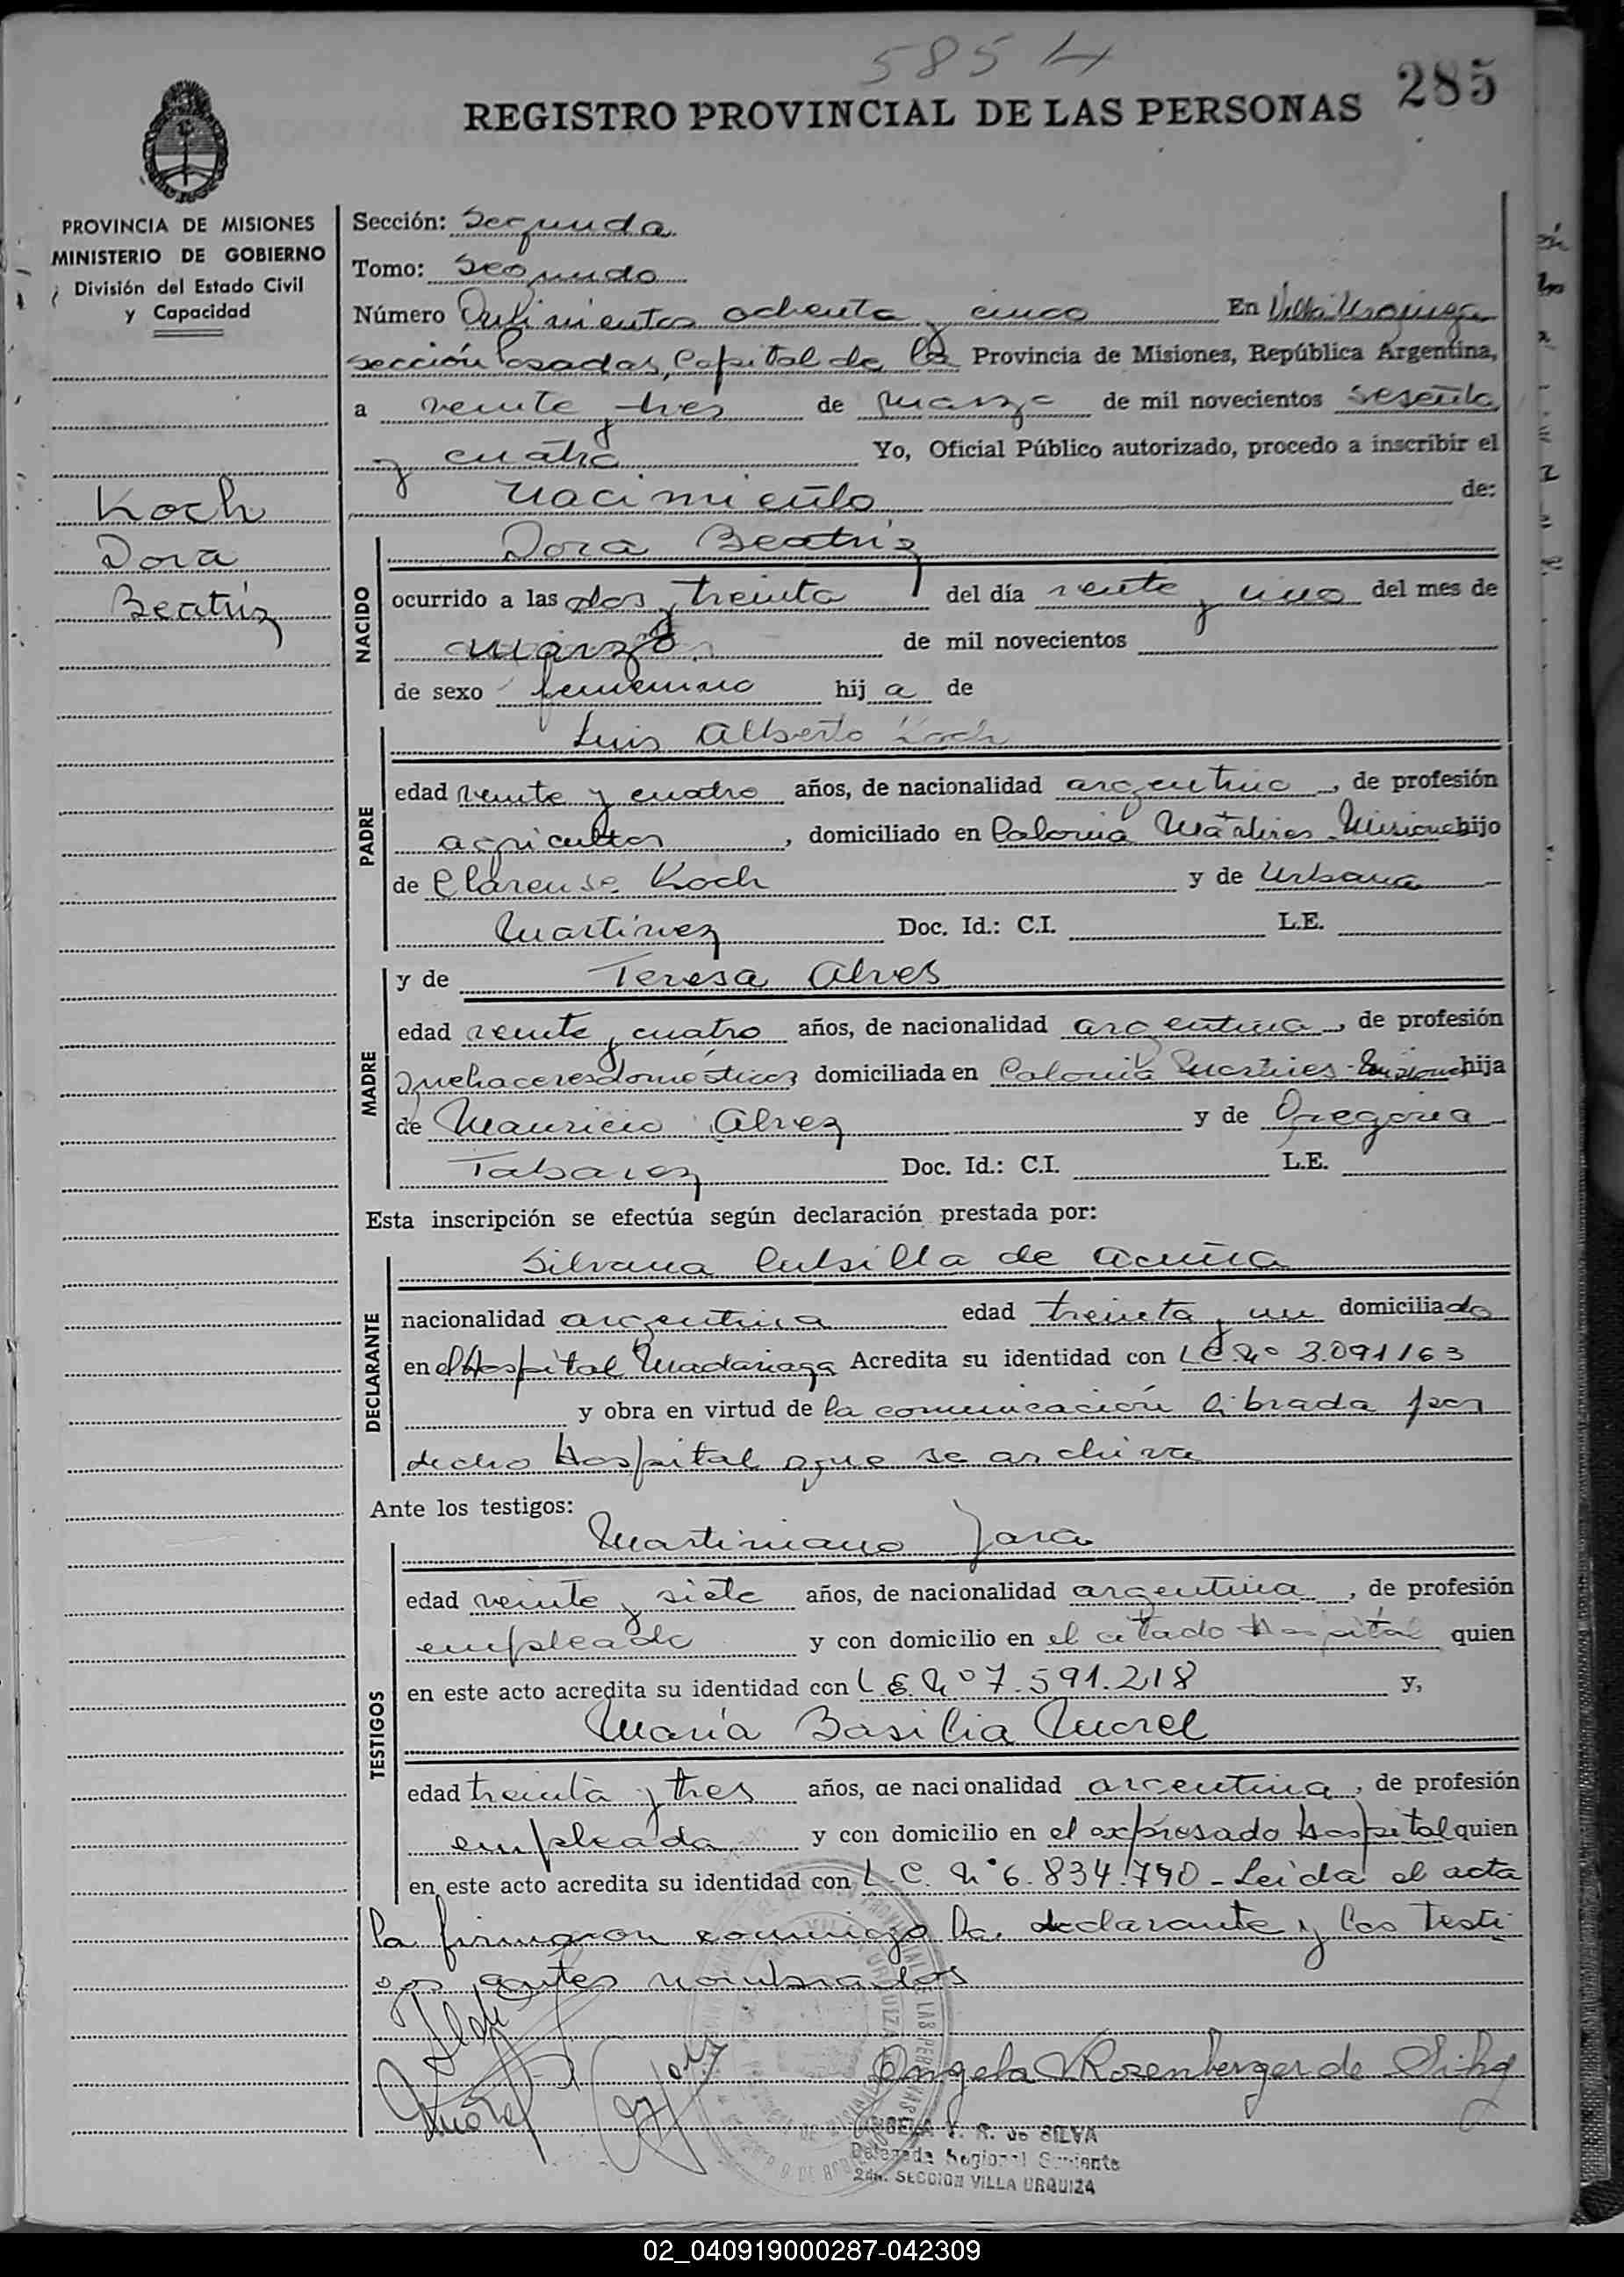 5854
285
REGISTRO PROVINCIAL DE LAS PERSONAS
PROVINCIA DE MISIONES
MINISTERIO DE GOBIERNO
División del Estado Civil
y Capacidad
Koch
Dora
Beatriz
Sección: Segunda
Tomo: Segundo
Número Quinientos ochenta y cinco En Villa Urquiza
sección Posadas, Capital de la Provincia de Misiones, República Argentina,
a veinte y tres de marzo de mil novecientos sesenta
y cuatro Yo, Oficial Público autorizado, procedo a inscribir el
nacimiento de:
NACIDO
Dora Beatriz
ocurrido a las dos y treinta del día veinte y uno del mes de
marzo de mil novecientos
de sexo femenino hija de
PADRE
Luis Alberto Koch
edad veinte y cuatro años, de nacionalidad argentino, de profesión
agricultor, domiciliado en Colonia Mártires Misiones hijo
de Clarense Koch y de Urbana
Martinez Doc. Id.: C.I. L.E.
MADRE
y de Teresa Alves
edad veinte y cuatro años, de nacionalidad argentina, de profesión
quehaceres domésticos domiciliada en Colonia Martires-Misiones hija
de Mauricio Alvez y de Gregoria
Tabarez Doc. Id.: C.I. L.E.
Esta inscripción se efectúa según declaración prestada por:
DECLARANTE
Silvana de Acuña
nacionalidad argentina edad treinta y un domiciliado
en el Hospital Madariaga Acredita su identidad con L.C. Nº 3.091163
y obra en virtud de la comunicación librada por
dicho Hospital que se archiva
Ante los testigos:
TESTIGOS
Martiniano Jara
edad veinte y siete años, de nacionalidad argentina, de profesión
empleado y con domicilio en el citado Hospital quien
en este acto acredita su identidad con L.E. Nº 7.591.218 y,
María Basilia Morel
edad treinta y tres años, de nacionalidad argentina, de profesión
empleada y con domicilio en el expresado Hospital quien
en este acto acredita su identidad con L.C. Nº 6.834.790 - Leída el acta
la firmaron conmigo la declarante y los testi
gos antes nombrados
Angela V Rosenberger de Silva
ANGELA V. R. de SILVA
Delegada Regional Suplente
2da. SECCION VILLA URQUIZA
02_040919000287-042309